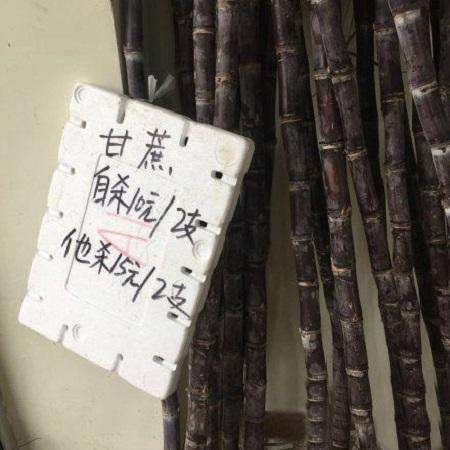 甘蔗
自杀10元/2支
他杀15元/2支